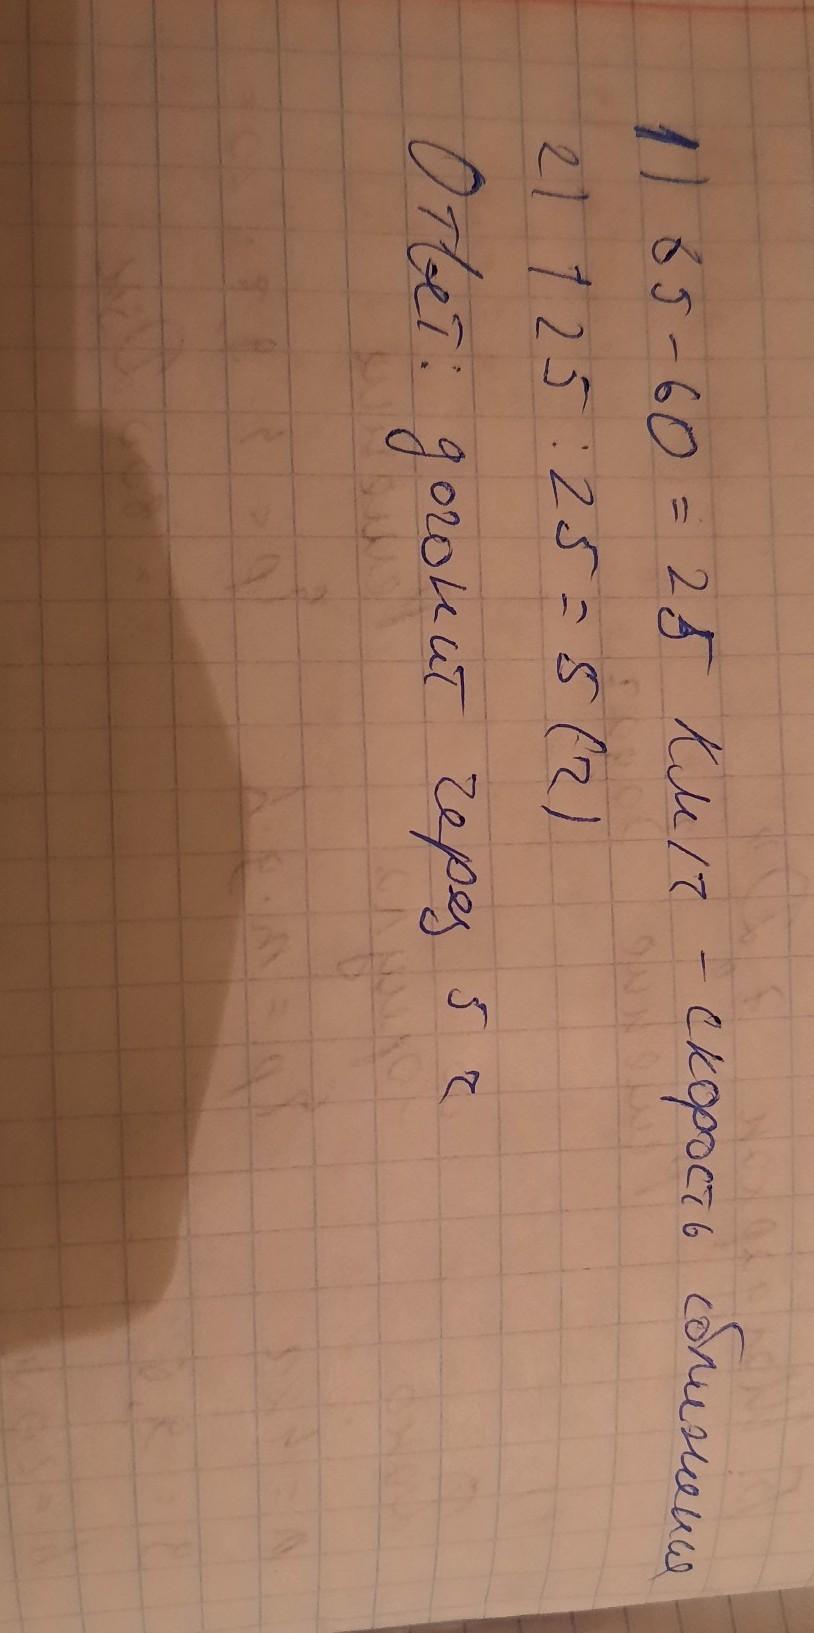 1) 85 - 60 = 25 км/ч - скорость сближения
2) 125 : 25 = 5 (ч)
Ответ: догонит через 5 ч